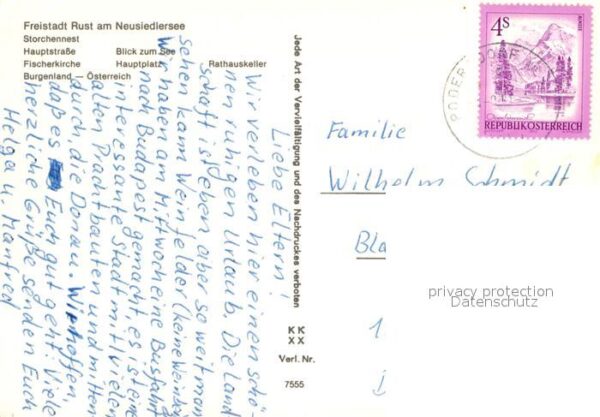 Freistadt Rust am Neusiedlersee
Storchennest
Hauptstraße Blick zum See
Fischerkirche Hauptplatz Rathauskeller
Burgenland — Österreich
Liebe Eltern!
Wir verleben hier einen schö-
nen ruhigen Urlaub. Die Land
schaft ist eben aber so weit man
sehen kann Weinfelder (keine Weinberge
Wir haben am Mittwoch eine Busfahrt
nach Budapest gemacht es ist eine
interessante Stadt mit vielen
alten Prachtbauten und mitten
durch die Donau. Wir hoffen,
daß es Euch gut geht. Viele
herzliche Grüße senden Euch
Helga u. Manfred
Jede Art der Vervielfältigung und des Nachdruckes verboten
KK
XX
Verl. Nr.
7555
4S
ALMSEE
REPUBLIK ÖSTERREICH
PODERSDORF
Familie
Wilhelm Schmidt
Bla
privacy protection
Datenschutz
1